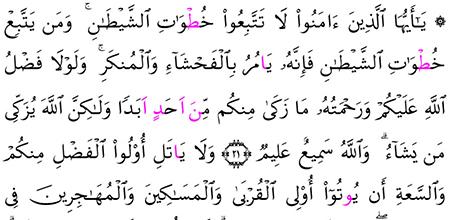 ۞ يَـٰٓأَيُّهَا ٱلَّذِينَ ءَامَنُوا۟ لَا تَتَّبِعُوا۟ خُطْوَٰتِ ٱلشَّيْطَـٰنِ ۚ وَمَن يَتَّبِعْ
خُطْوَٰتِ ٱلشَّيْطَـٰنِ فَإِنَّهُۥ يَامُرُ بِٱلْفَحْشَآءِ وَٱلْمُنكَرِ ۚ وَلَوْلَا فَضْلُ
ٱللَّهِ عَلَيْكُمْ وَرَحْمَتُهُۥ مَا زَكَىٰ مِنكُم مِّنَ اَحَدٍ اَبَدًا وَلَـٰكِنَّ ٱللَّهَ يُزَكِّى
مَن يَشَآءُ ۗ وَٱللَّهُ سَمِيعٌ عَلِيمٌ ﴿٢١﴾ وَلَا يَاتَلِ أُو۟لُوا۟ ٱلْفَضْلِ مِنكُمْ
وَٱلسَّعَةِ أَن يُوتُوٓا۟ أُو۟لِى ٱلْقُرْبَىٰ وَٱلْمَسَـٰكِينَ وَٱلْمُهَـٰجِرِينَ فِى